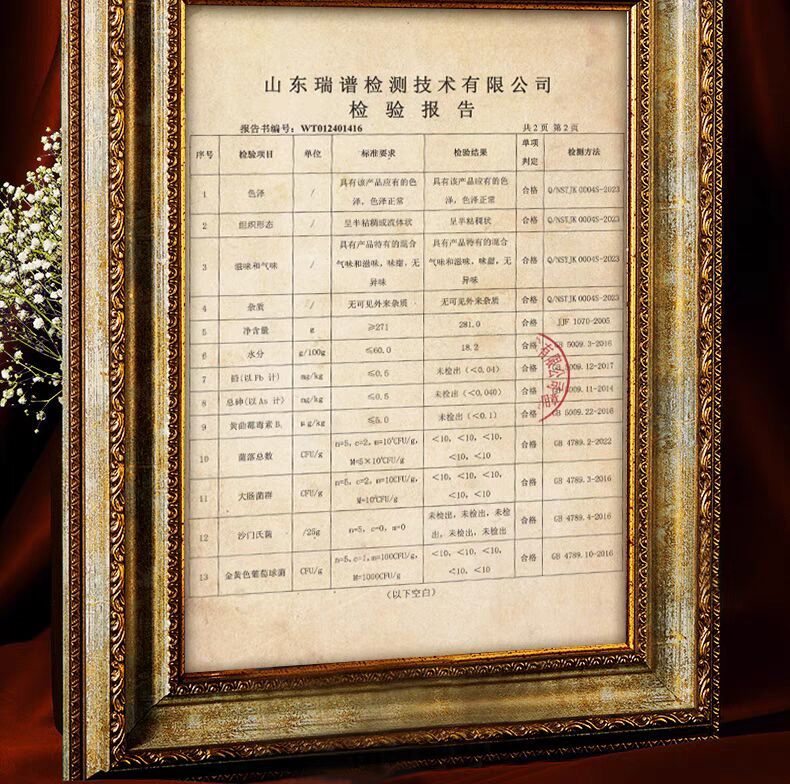 山东瑞谱检测技术有限公司
检验报告
报告书编号：WT012401416 共2页 第2页
序号 检验项目 单位 标准要求 检验结果 单项判定 检测方法
1 色泽 / 具有该产品应有的色泽，色泽正常 具有该产品应有的色泽，色泽正常 合格 Q/NSTJK 0004S-2023
2 组织形态 / 呈半粘稠或流体状 呈半粘稠状 合格 Q/NSTJK 0004S-2023
3 滋味和气味 / 具有产品特有的混合气味和滋味，味甜，无异味 具有产品特有的混合气味和滋味，味甜，无异味 合格 Q/NSTJK 0004S-2023
4 杂质 / 无可见外来杂质 无可见外来杂质 合格 Q/NSTJK 0004S-2023
5 净含量 g ≥271 281.0 合格 JJF 1070-2005
6 水分 g/100g ≤60.0 18.2 合格 5009.3-2016
7 铅(以 Pb 计) mg/kg ≤0.5 未检出（<0.04） 合格 5009.12-2017
8 总砷(以 As 计) mg/kg ≤0.5 未检出（<0.040） 合格 5009.11-2014
9 黄曲霉毒素 B₁ μg/kg ≤5.0 未检出（<0.1） 合格 GB 5009.22-2016
10 菌落总数 CFU/g n=5，c=2，m=10³CFU/g，M=5×10⁴CFU/g <10，<10，<10，<10，<10 合格 GB 4789.2-2022
11 大肠菌群 CFU/g n=5，c=2，m=10CFU/g，M=10²CFU/g <10，<10，<10，<10，<10 合格 GB 4789.3-2016
12 沙门氏菌 /25g n=5，c=0，m=0 未检出，未检出，未检出，未检出，未检出 合格 GB 4789.4-2016
13 金黄色葡萄球菌 CFU/g n=5，c=1，m=100CFU/g，M=1000CFU/g <10，<10，<10，<10，<10 合格 GB 4789.10-2016
（以下空白）
有限公司